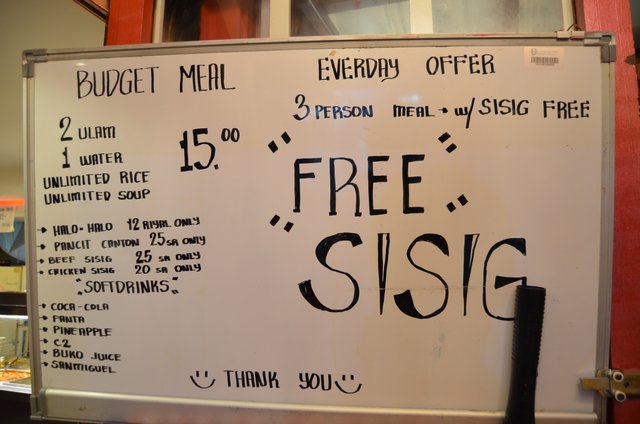 BUDGET MEAL
2 ULAM
1 WATER
15.00
UNLIMITED RICE
UNLIMITED SOUP
HALO-HALO 12 RIYAL ONLY
PANCIT CANTON 25 SR ONLY
BEEF SISIG 25 SR ONLY
CHICKEN SISIG 20 SR ONLY
"SOFTDRINKS"
COCA-COLA
FANTA
PINEAPPLE
C2
BUKO JUICE
SANMIGUEL
EVERDAY OFFER
3 PERSON MEAL - W/ SISIG FREE
"FREE"
"SISIG
THANK YOU